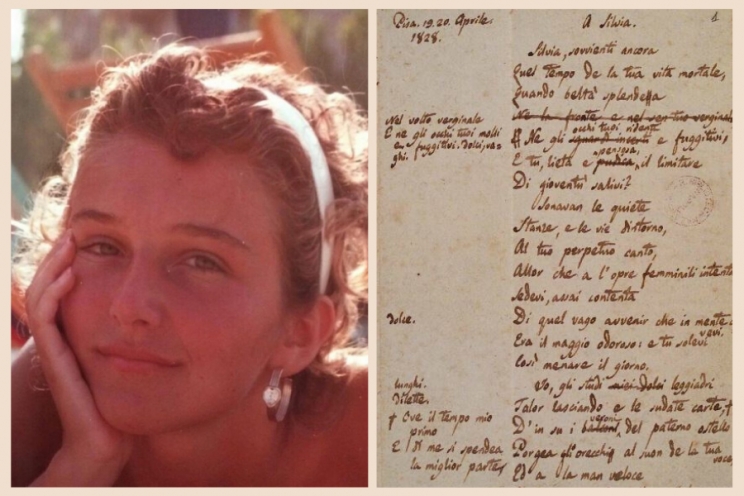 Pisa. 19. 20. Aprile.
1828.
A Silvia.
Silvia, sovvienti ancora
Quel tempo de la tua vita mortale,
Quando beltà splendea
Ne la fronte e nel sen tuo verginale
Nel volto verginale
E ne gli occhi tuoi molli
e fuggitivi. dolci, va-
ghi.
occhi tuoi ridenti
Ne gli sguardi incerti e fuggitivi,
pensosa,
E tu, lieta e pudica, il limitare
Di gioventù salivi?
Sonavan le quiete
Stanze, e le vie dintorno,
Al tuo perpetuo canto,
Allor che a l'opre femminili intenta
Sedevi, assai contenta
dolce.
Di quel vago avvenir che in mente
avevi.
Era il maggio odoroso: e tu solevi
Così menare il giorno.
lunghi.
dilette.
Io, gli studi miei dolci leggiadri
Talor lasciando e le sudate carte, †
† Ove il tempo mio
primo
E di me si spendea
la miglior parte,
veroni
D'in su i balconi, del paterno ostello
Porgea gli orecchi al suon de la tua
voce,
Ed a la man veloce